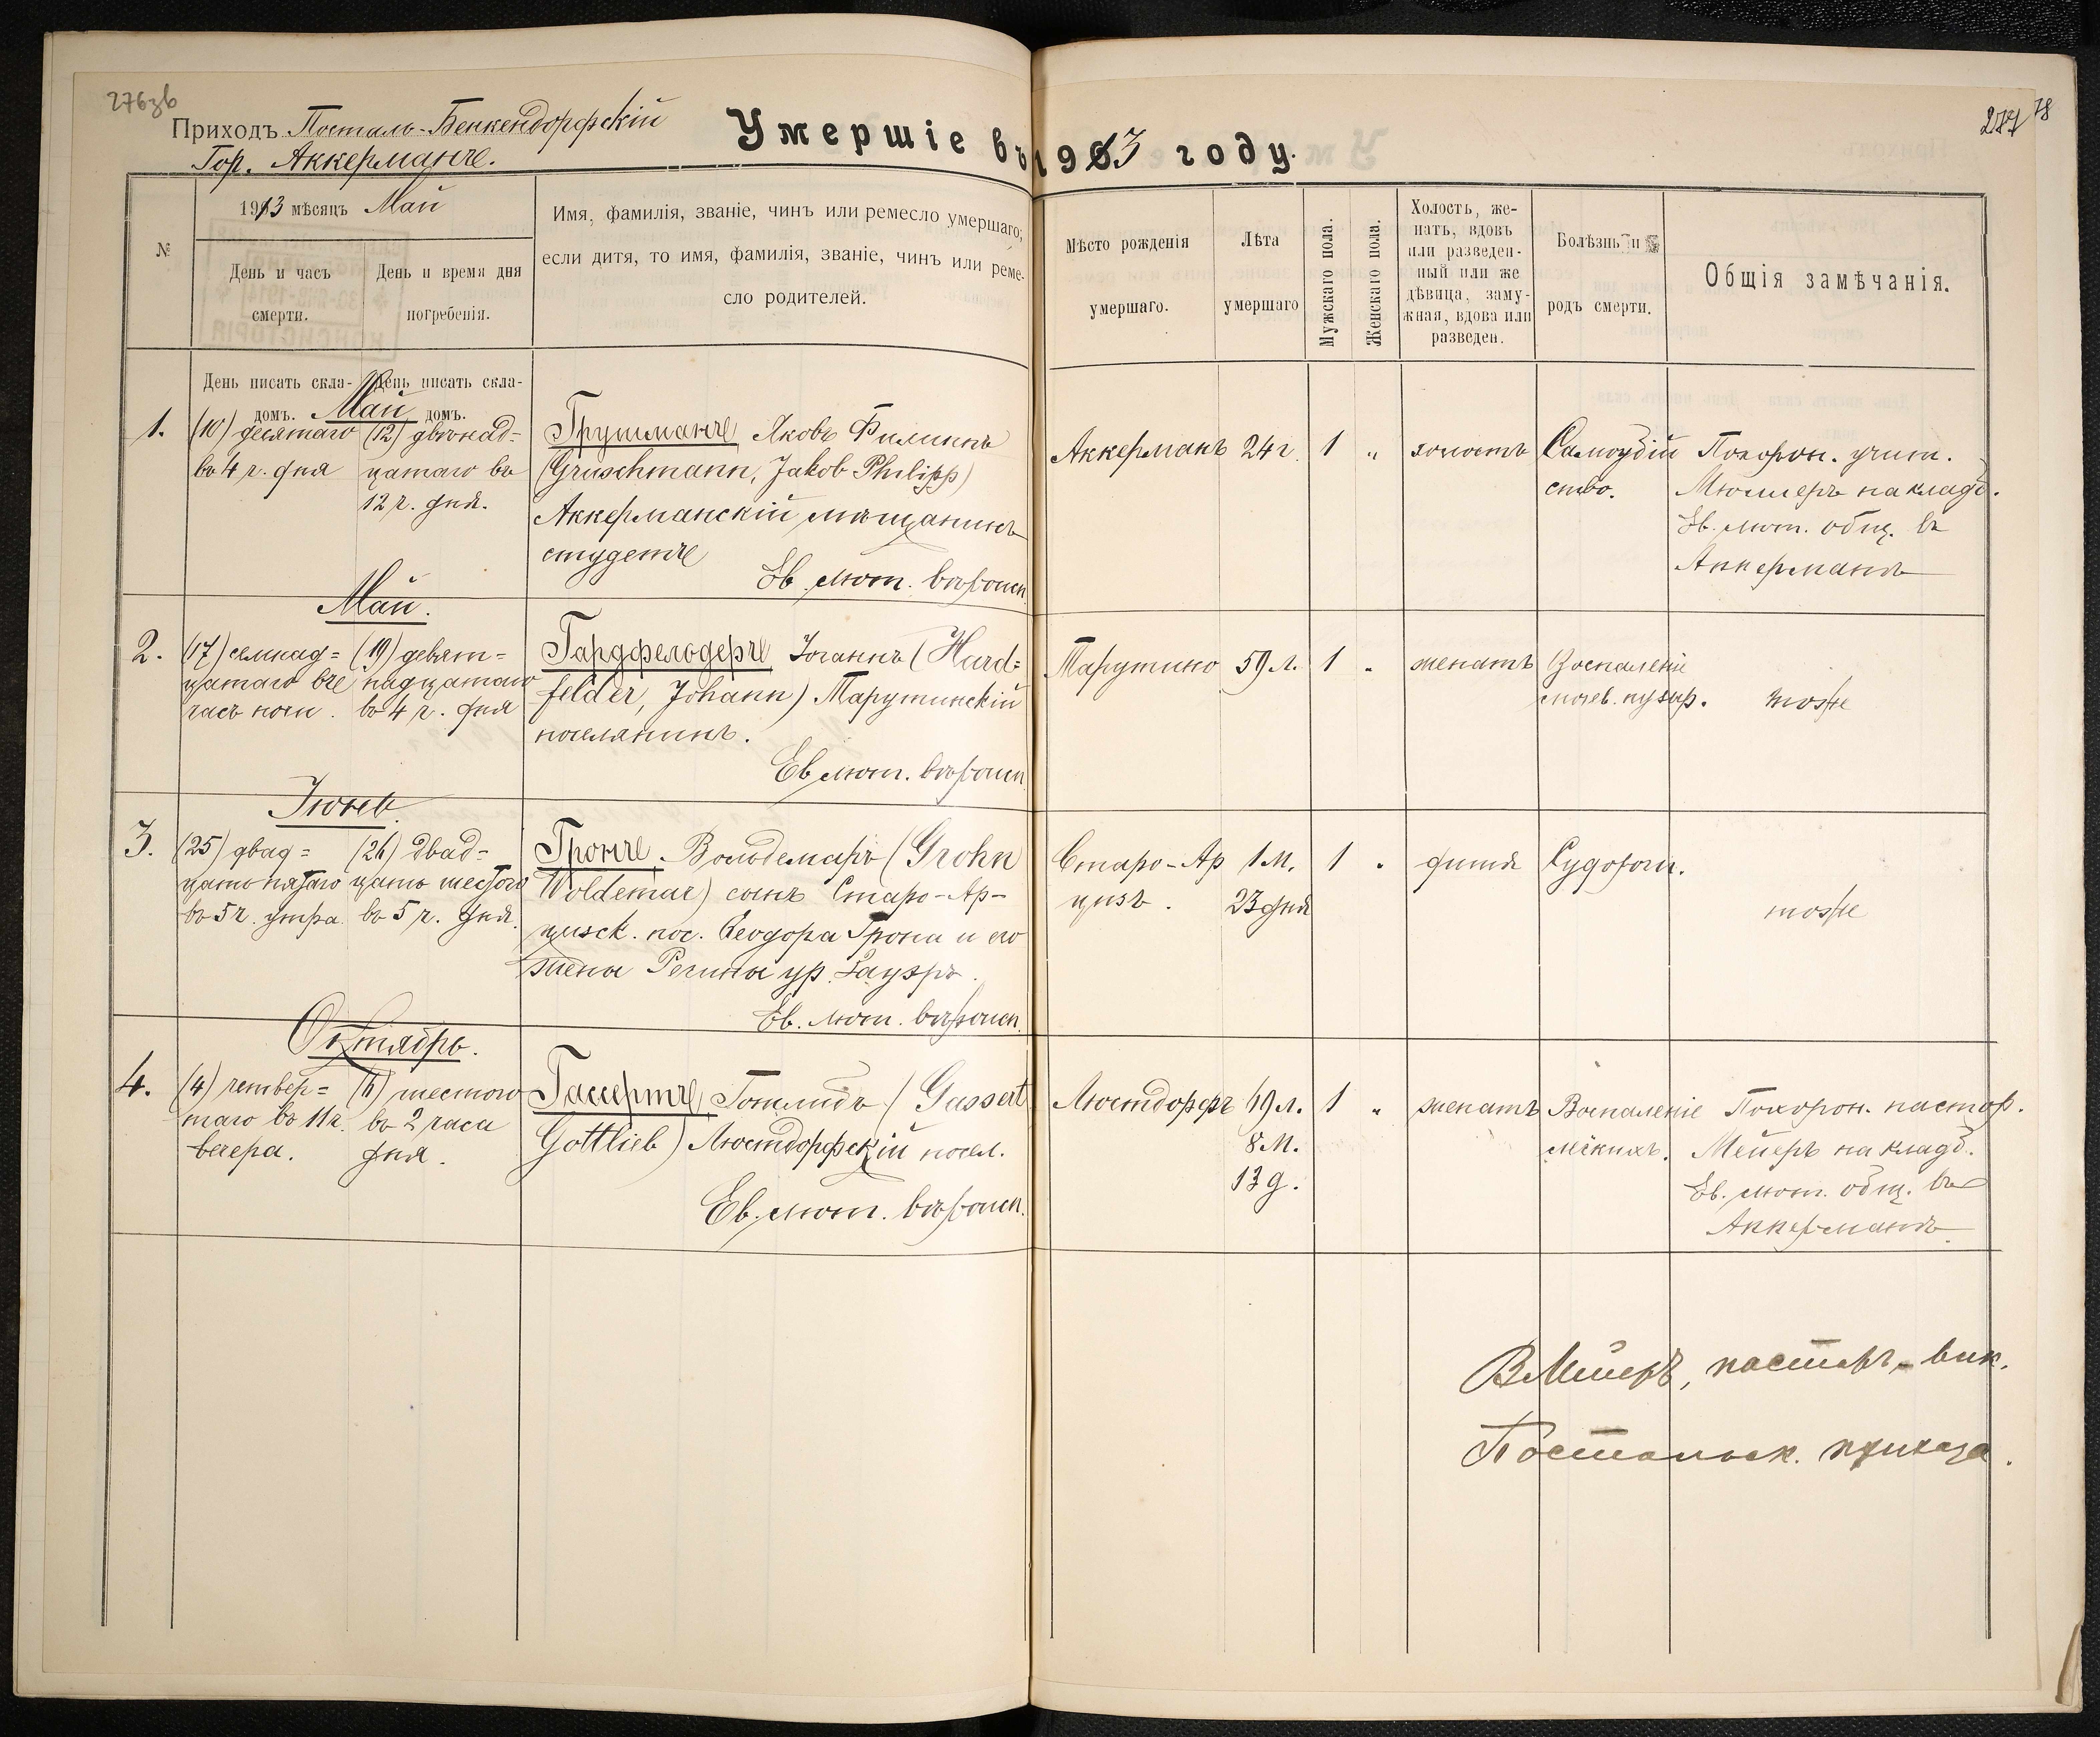 276зб
Приходъ Посталь-Бенкендорфскій
Гор. Аккерманъ.
Умершіе въ 1913 году.
277 78
№
1913 мѣсяцъ Май
День и часъ смерти.
День и время дня погребенія.
Имя, фамилія, званіе, чинъ или ремесло умершаго;
если дитя, то имя, фамилія, званіе, чинъ или реме-
сло родителей.
Мѣсто рожденія
умершаго.
Лѣта
умершаго
Мужскаго пола.
Женскаго пола.
Холостъ, же-
натъ, вдовъ
или разведен-
ный или же
дѣвица, заму-
жная, вдова или
разведен.
Болѣзнь и
родъ смерти.
Общія замѣчанія.
День писать скла-
домъ.
День писать скла-
домъ.
Май
1.
(10) десятаго
въ 4 ч. дня
(12) двѣнад=
цатаго въ
12 ч. дня.
Грушманъ Яковъ Филиппъ
(Gruschmann, Jakob Philipp)
Аккерманскій мѣщанинъ
студентъ
Ев. лют. вѣроисп.
Аккерманъ
24 г.
1
"
холостъ
Самоубій
ство.
Похорон. учит.
Мюллеръ на кладб.
Ев. лют. общ. въ
Аккерманѣ
Май.
2.
(17) семнад=
цатаго въ
часъ ночи.
(19) девят=
надцатаго
въ 4 ч. дня
Гардфельдеръ Іоганнъ (Hard=
felder, Johann) Тарутинскій
поселянинъ.
Ев. лют. вѣроисп.
Тарутино
59 л.
1
"
женатъ
Воспаленіе
мочев. пузыр.
тоже
Іюнь.
3.
(25) двад=
цать пятаго
въ 5 ч. утра
(26) двад=
цать шестого
въ 5 ч. дня.
Гронъ Вольдемаръ (Grohn
Woldemar) сынъ Старо-Ар-
цизск. пос. Ѳеодора Грона и его
жены Регины ур. Зауэръ.
Ев. лют. вѣроисп.
Старо-Ар
цизъ.
1 М.
23 дня
1
"
дитя
Судороги.
тоже
Октябрь.
4.
(4) четвер=
таго въ 11 ч.
вечера.
(6) шестого
въ 2 часа
дня.
Гассертъ, Готлибъ (Gassert
Gottlieb) Люстдорфскій посел.
Ев. лют. вѣроисп.
Люстдорфъ
49 л.
8 М.
13 д.
1
"
женатъ
Воспаленіе
лёкихъ.
Похорон. пастор.
Мейеръ на кладб.
Ев. лют. общ. въ
Аккерманѣ.
В Мейеръ, пасторъ-вик.
Постальск. прихода.